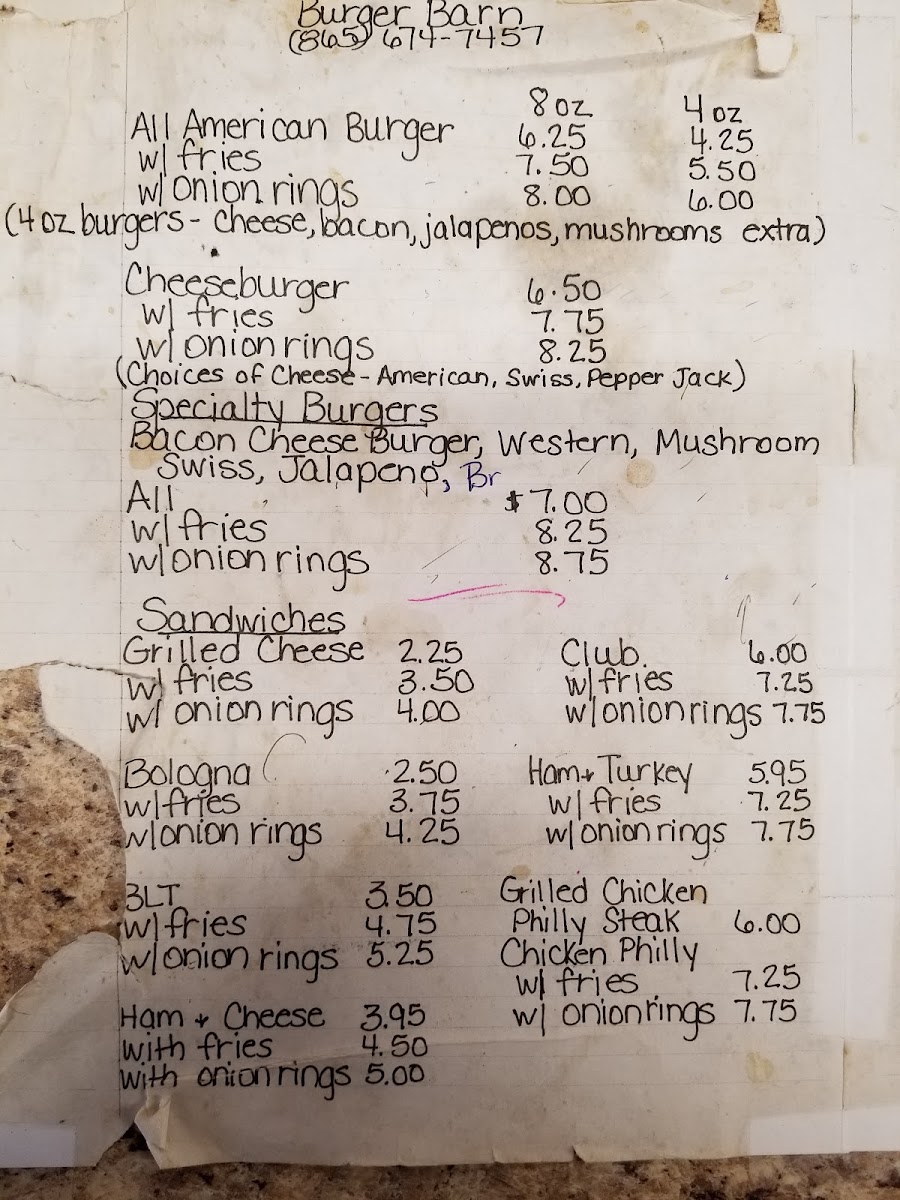 Burger Barn
(865) 674-7457
8oz 4oz
All American Burger 6.25 4.25
w/ fries 7.50 5.50
w/ onion rings 8.00 6.00
(4oz burgers - cheese, bacon, jalapenos, mushrooms extra)
Cheeseburger 6.50
w/ fries 7.75
w/ onion rings 8.25
(Choices of Cheese - American, Swiss, Pepper Jack)
Specialty Burgers
Bacon Cheese Burger, Western, Mushroom
Swiss, Jalapeno, Br
All $7.00
w/ fries 8.25
w/ onion rings 8.75
Sandwiches
Grilled Cheese 2.25 Club 6.00
w/ fries 3.50 w/ fries 7.25
w/ onion rings 4.00 w/ onion rings 7.75
Bologna 2.50 Ham + Turkey 5.95
w/ fries 3.75 w/ fries 7.25
w/ onion rings 4.25 w/ onion rings 7.75
BLT 3.50 Grilled Chicken
w/ fries 4.75 Philly Steak 6.00
w/ onion rings 5.25 Chicken Philly
w/ fries 7.25
Ham + Cheese 3.95 w/ onion rings 7.75
with fries 4.50
with onion rings 5.00